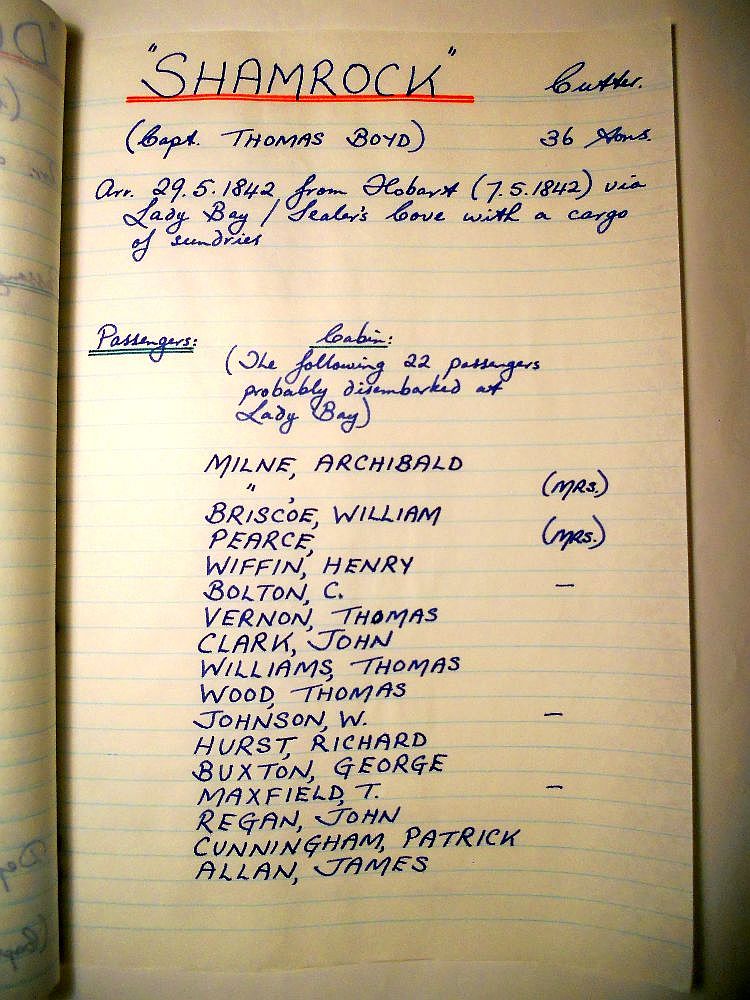 "SHAMROCK" Cutter.
(Capt. THOMAS BOYD) 36 tons.
Arr. 29.5.1842 from Hobart (7.5.1842) via
Lady Bay / Sealer's Cove with a cargo
of sundries
Passengers: Cabin:
(The following 22 passengers
probably disembarked at
Lady Bay)
MILNE, ARCHIBALD
" , (MRS.)
BRISCOE, WILLIAM
PEARCE, (MRS.)
WIFFIN, HENRY
BOLTON, C. —
VERNON, THOMAS
CLARK, JOHN
WILLIAMS, THOMAS
WOOD, THOMAS
JOHNSON, W. —
HURST, RICHARD
BUXTON, GEORGE
MAXFIELD, T. —
REGAN, JOHN
CUNNINGHAM, PATRICK
ALLAN, JAMES